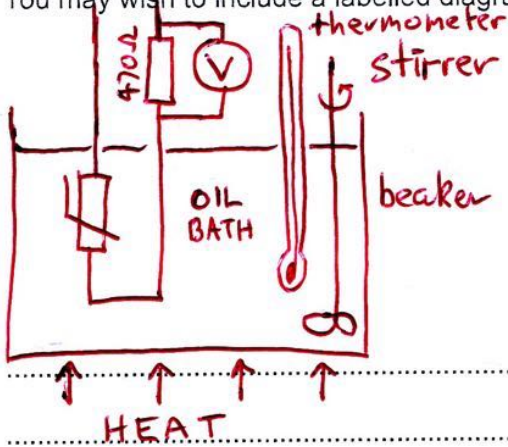 You may wish to include a labelled diagra
thermometer
stirrer
470Ω
V
beaker
OIL
BATH
HEAT